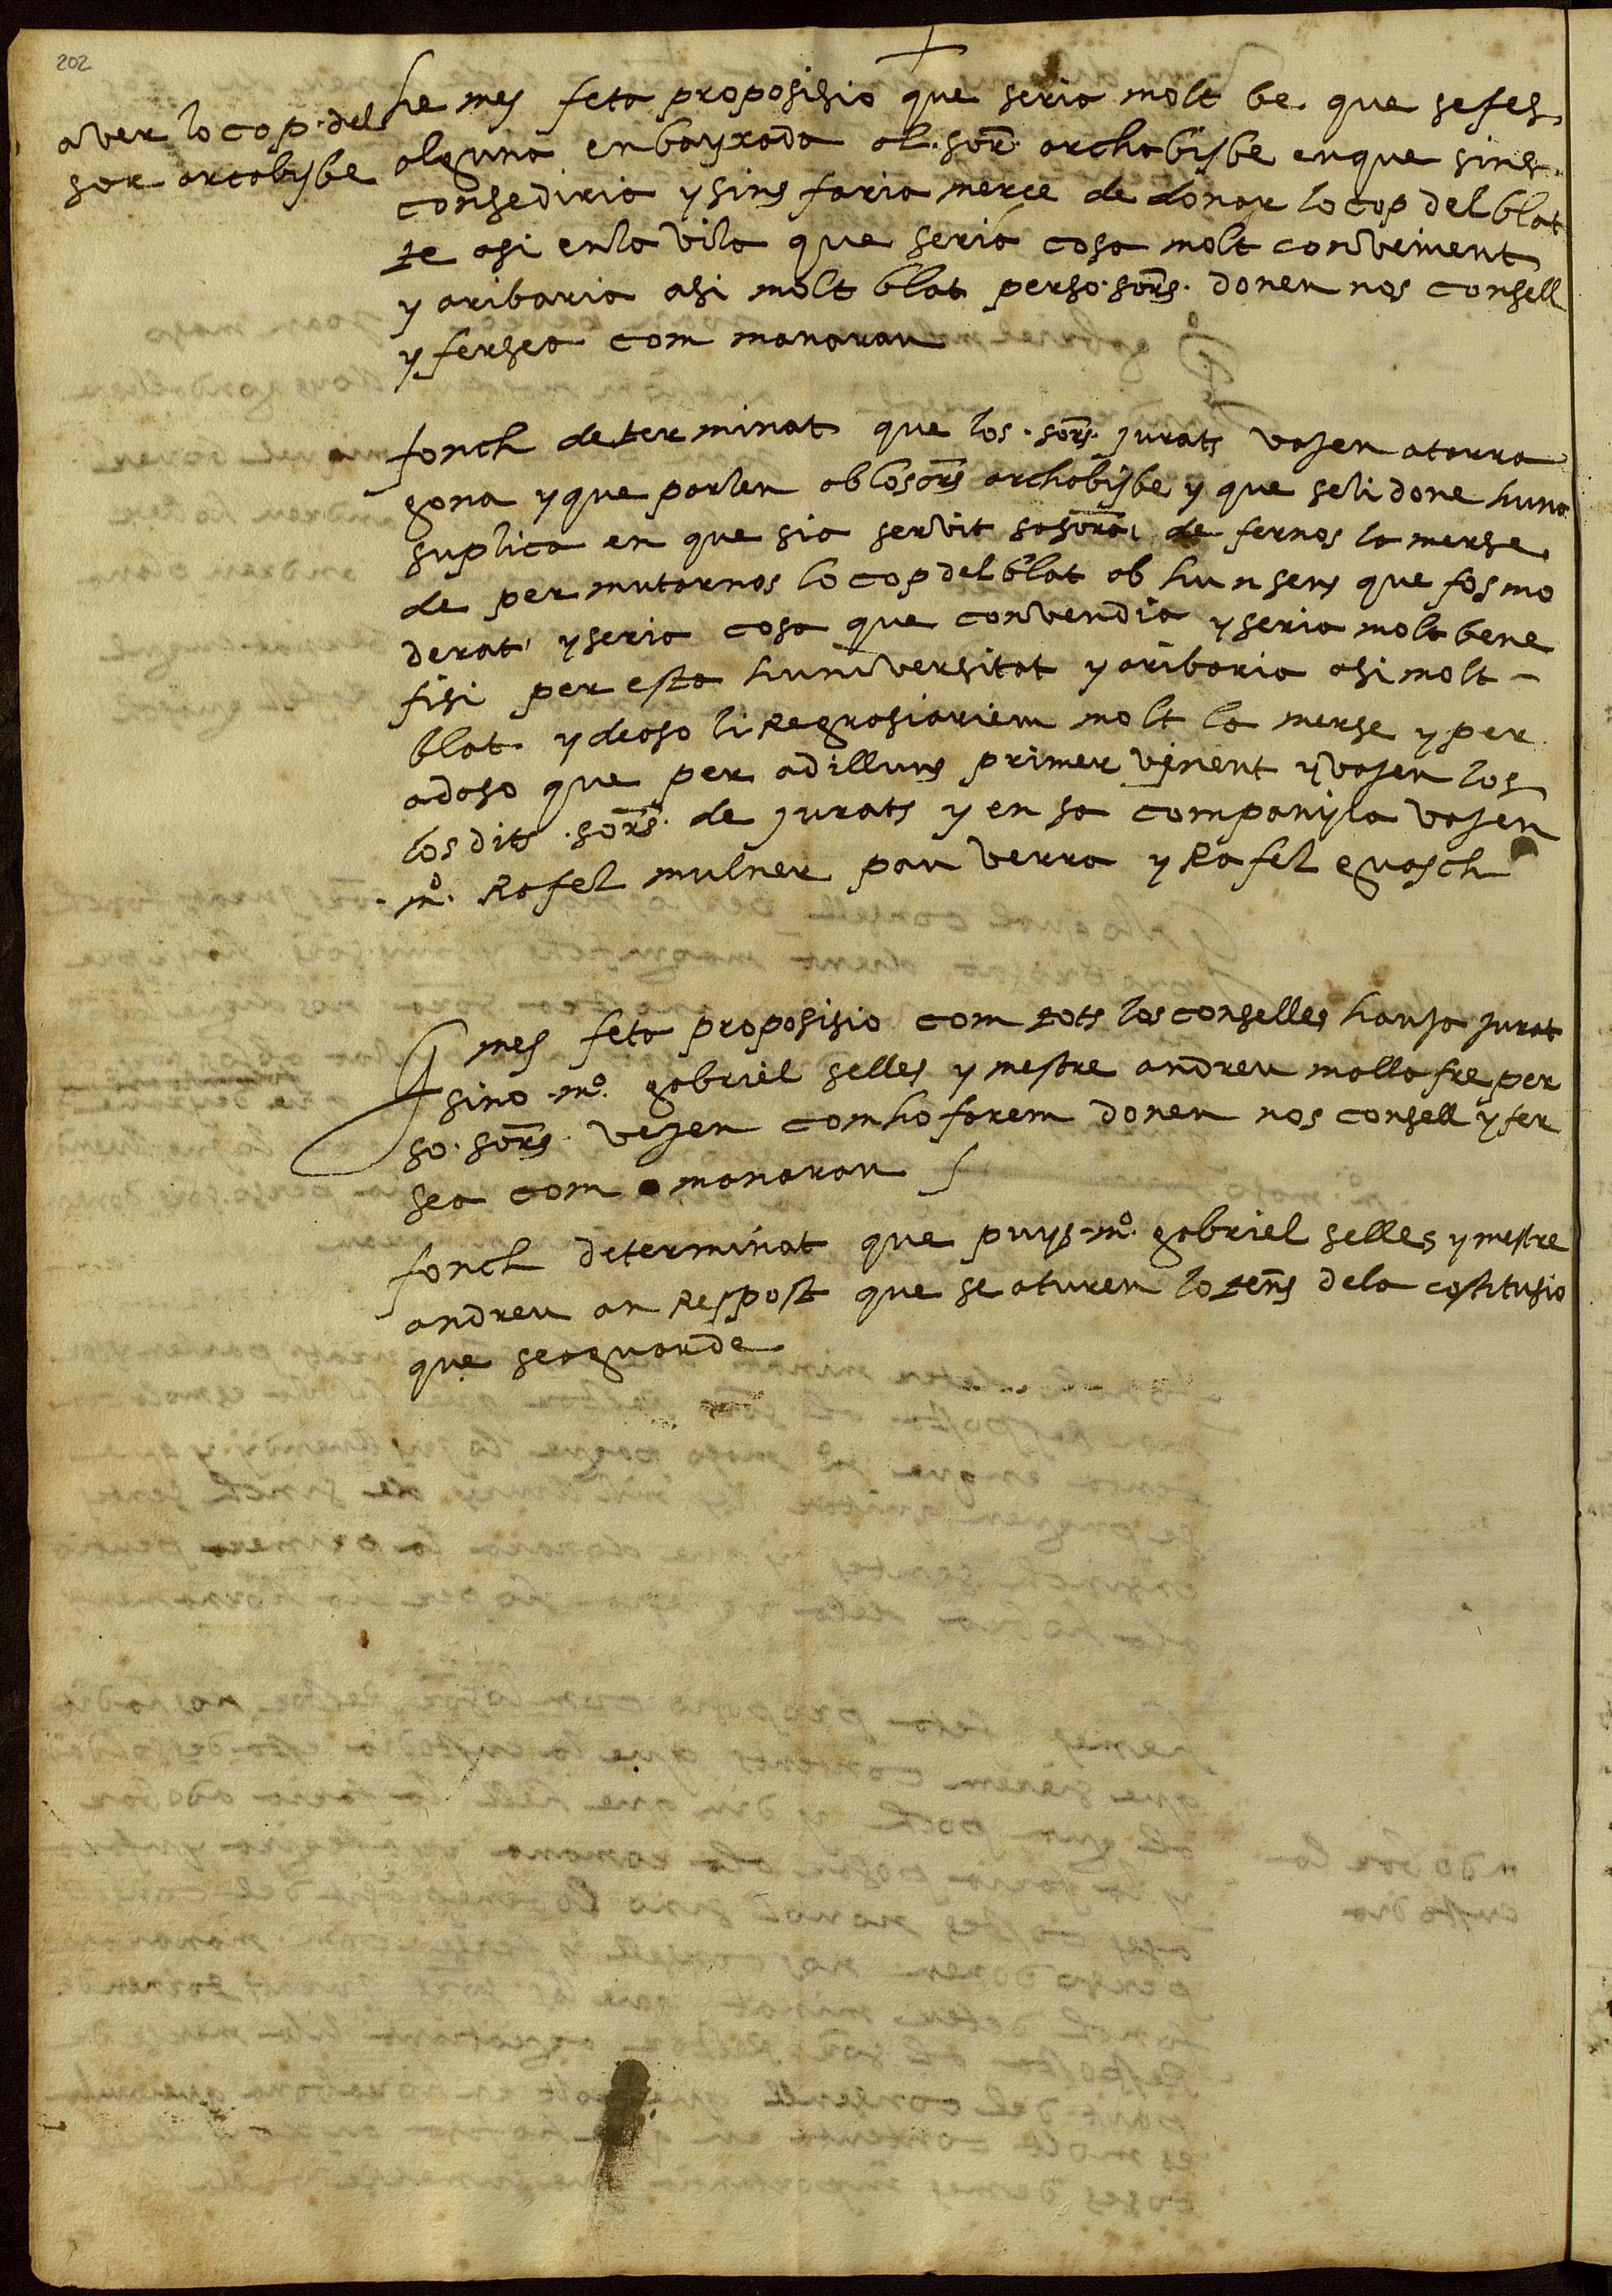 202
aver lo cop del
sor arcabisbe
he mes feta proposisio que seria molt be que se fes
alguna enbayxada al .sor. archabisbe en que sins
consediria y sins faria merce de donar lo cop del blat
te asi en la vila que seria cosa molt conveinent
y aribaria asi molt blat perso .sors. donen nos consell
y fersea com manaran
fonch determinat que los .sors. jurats vajen a tarra
gona y que parlen ab lo sors archabisbe y que se li done huna
suplica en que sia servit sa sora de fernos la merse
de permutarnos lo cop del blat ab hun sens que fos mo
derat y seria cosa que convendia y seria molt bene
fisi per esta huniversitat y aribaria asi molt
blat y de aso li regrasiariem molt la merse y per
adaso que per a dilluns primer vinent y vajen los
los dits .sors. de jurats y en sa companyia vajen
.mo. Rafel mulner pau verra y Rafel guasch
mes feta proposisio com tots los conselles hauja jurat
sino .mo. gabriel selles y mestre andreu mallafre per
so .sors. vejen com ho farem donen nos consell y fer
sea com manaran
fonch determinat que puys .mo. gabriel selles y mestre
andreu an respost que se aturen lo tems de la costitusio
que se aguarde